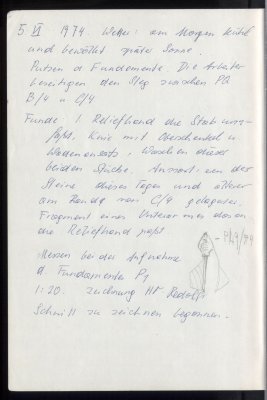 5 VI 1974. Wetter: am Morgen kühl
und bewölkt später Sonne.
Putzen d Fundamente. Die Arbeiter
beseitigen den Steg zwischen PQ
B/4 u C/4
Funde: 1 Reliefhand die Stab um-
faßt. Knie mit Oberschenkel u
Wadenansatz. Waschen dieser
beiden Stücke. Aussort der
Steine dieser Tage und älterer
am Rande von C/4 gelagert.
Fragment eines Unterarmes an
die Reliefhand paßt
Messen bei der Aufnahme
d. Fundamente P1
1:20. Zeichnung Hr
Schnitt zu zeichnen begonnen.